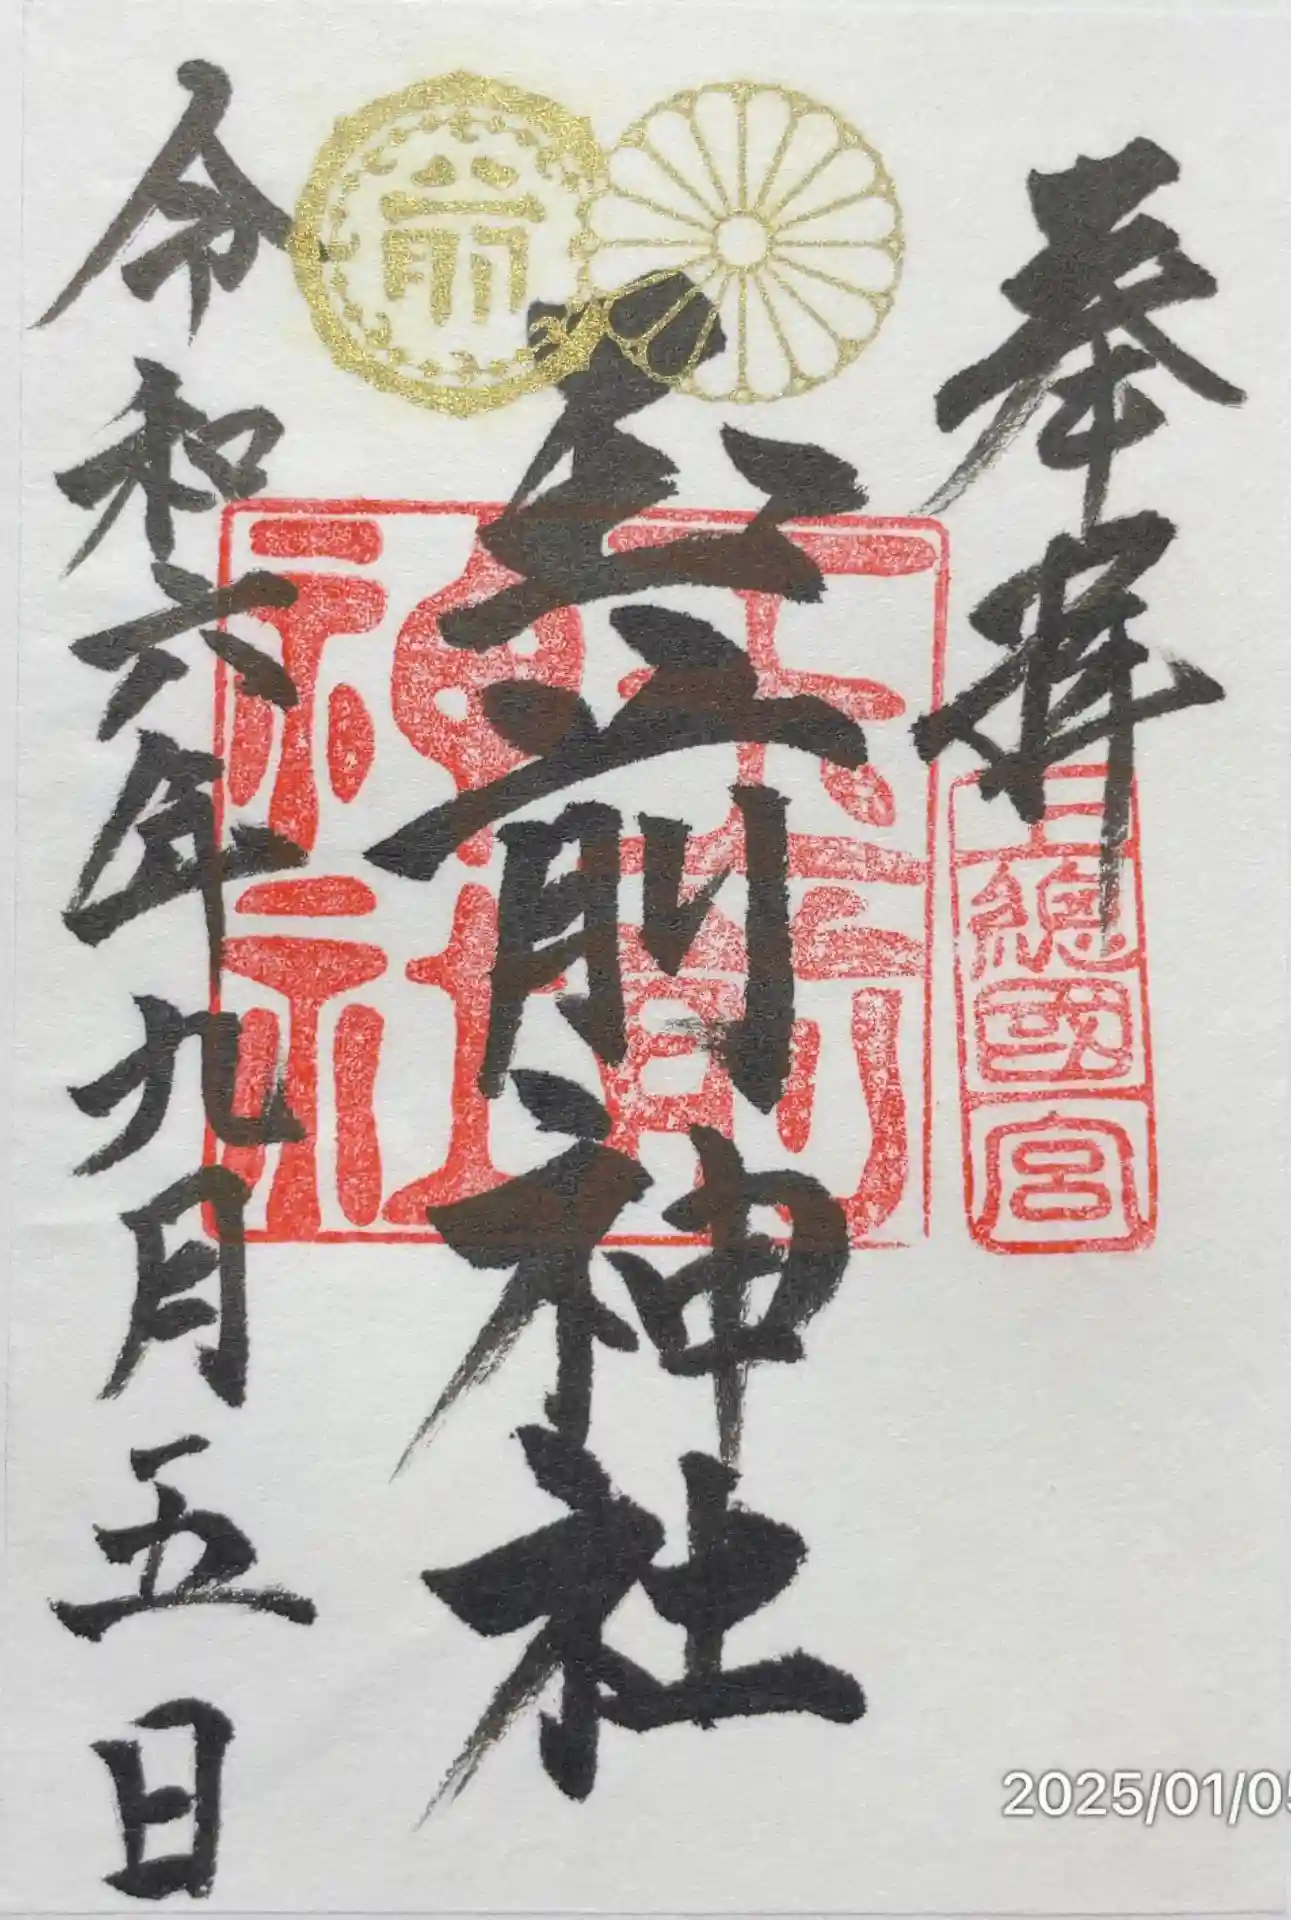 奉拝
上總國一宮
玉前神社
玉前神社
令和六年九月五日
2025/01/05